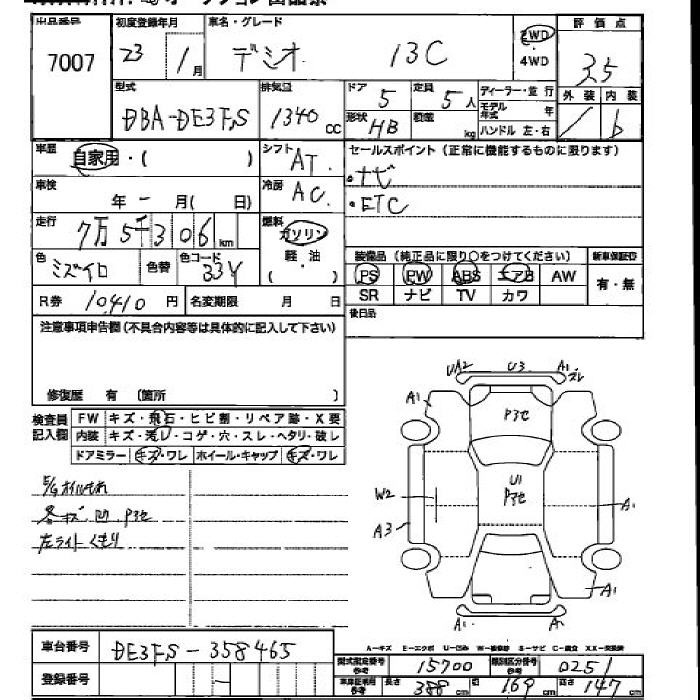 出品番号 初度登録年月 車名・グレード 評価点
7007 23 1月 デミオ 13C 2WD 3.5
4WD
型式 排気量 ドア 定員 ディーラー・並行 外装 内装
DBA-DE3FS 1340cc 5 5人 モデル年式 年 b
形状 HB 積載 kg ハンドル 左・右
車歴 自家用・( ) シフト AT セールスポイント(正常に機能するものに限ります)
車検 年 - 月( 日) 冷房 AC ・ナビ
・ETC
走行 7万5千306km 燃料 ガソリン
軽・油
( )
装備品(純正品に限り○をつけてください) 新車保証印
色 ミズイロ 色替 色コード 33Y PS PW ABS エアB AW 有・無
R券 10,410円 名変期限 月 日 SR ナビ TV カワ
注意事項申告欄(不具合内容等は具体的に記入して下さい) 後日品
修復歴 有 (箇所 )
検査員記入欄 FW キズ・飛石・ヒビ割・リペア跡・X要
内装 キズ・汚レ・コゲ・穴・スレ・ヘタリ・破レ
ドアミラー キズ・ワレ ホイール・キャップ キズ・ワレ
E/Gオイルもれ
各キズ.凹.P3セ
左ライトくもり
UA2 U3 A1 スレ
A1
P3セ
U1
P3セ
W2 A1
A3
A1
A1 A1
A-キズ E-エクボ U-凹み W-補修跡 S-サビ C-腐食 XX-交換済
車台番号 DE3FS-358465 型式指定番号参考 15700 類別区分番号参考 0251
登録番号 - 車庫証明用参考 長さ 388cm 幅 169cm 高さ 147cm